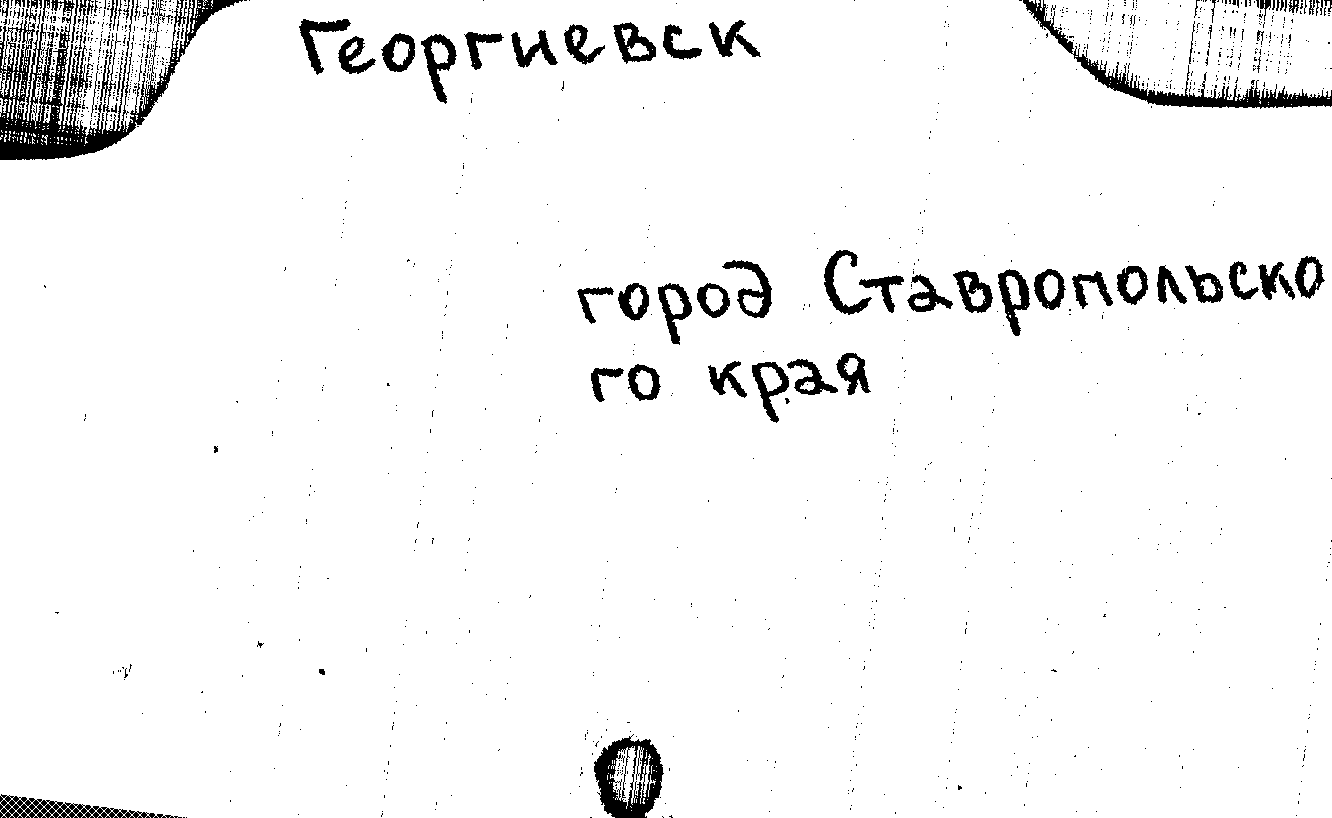 Георгиевск
город Ставропольско
го края